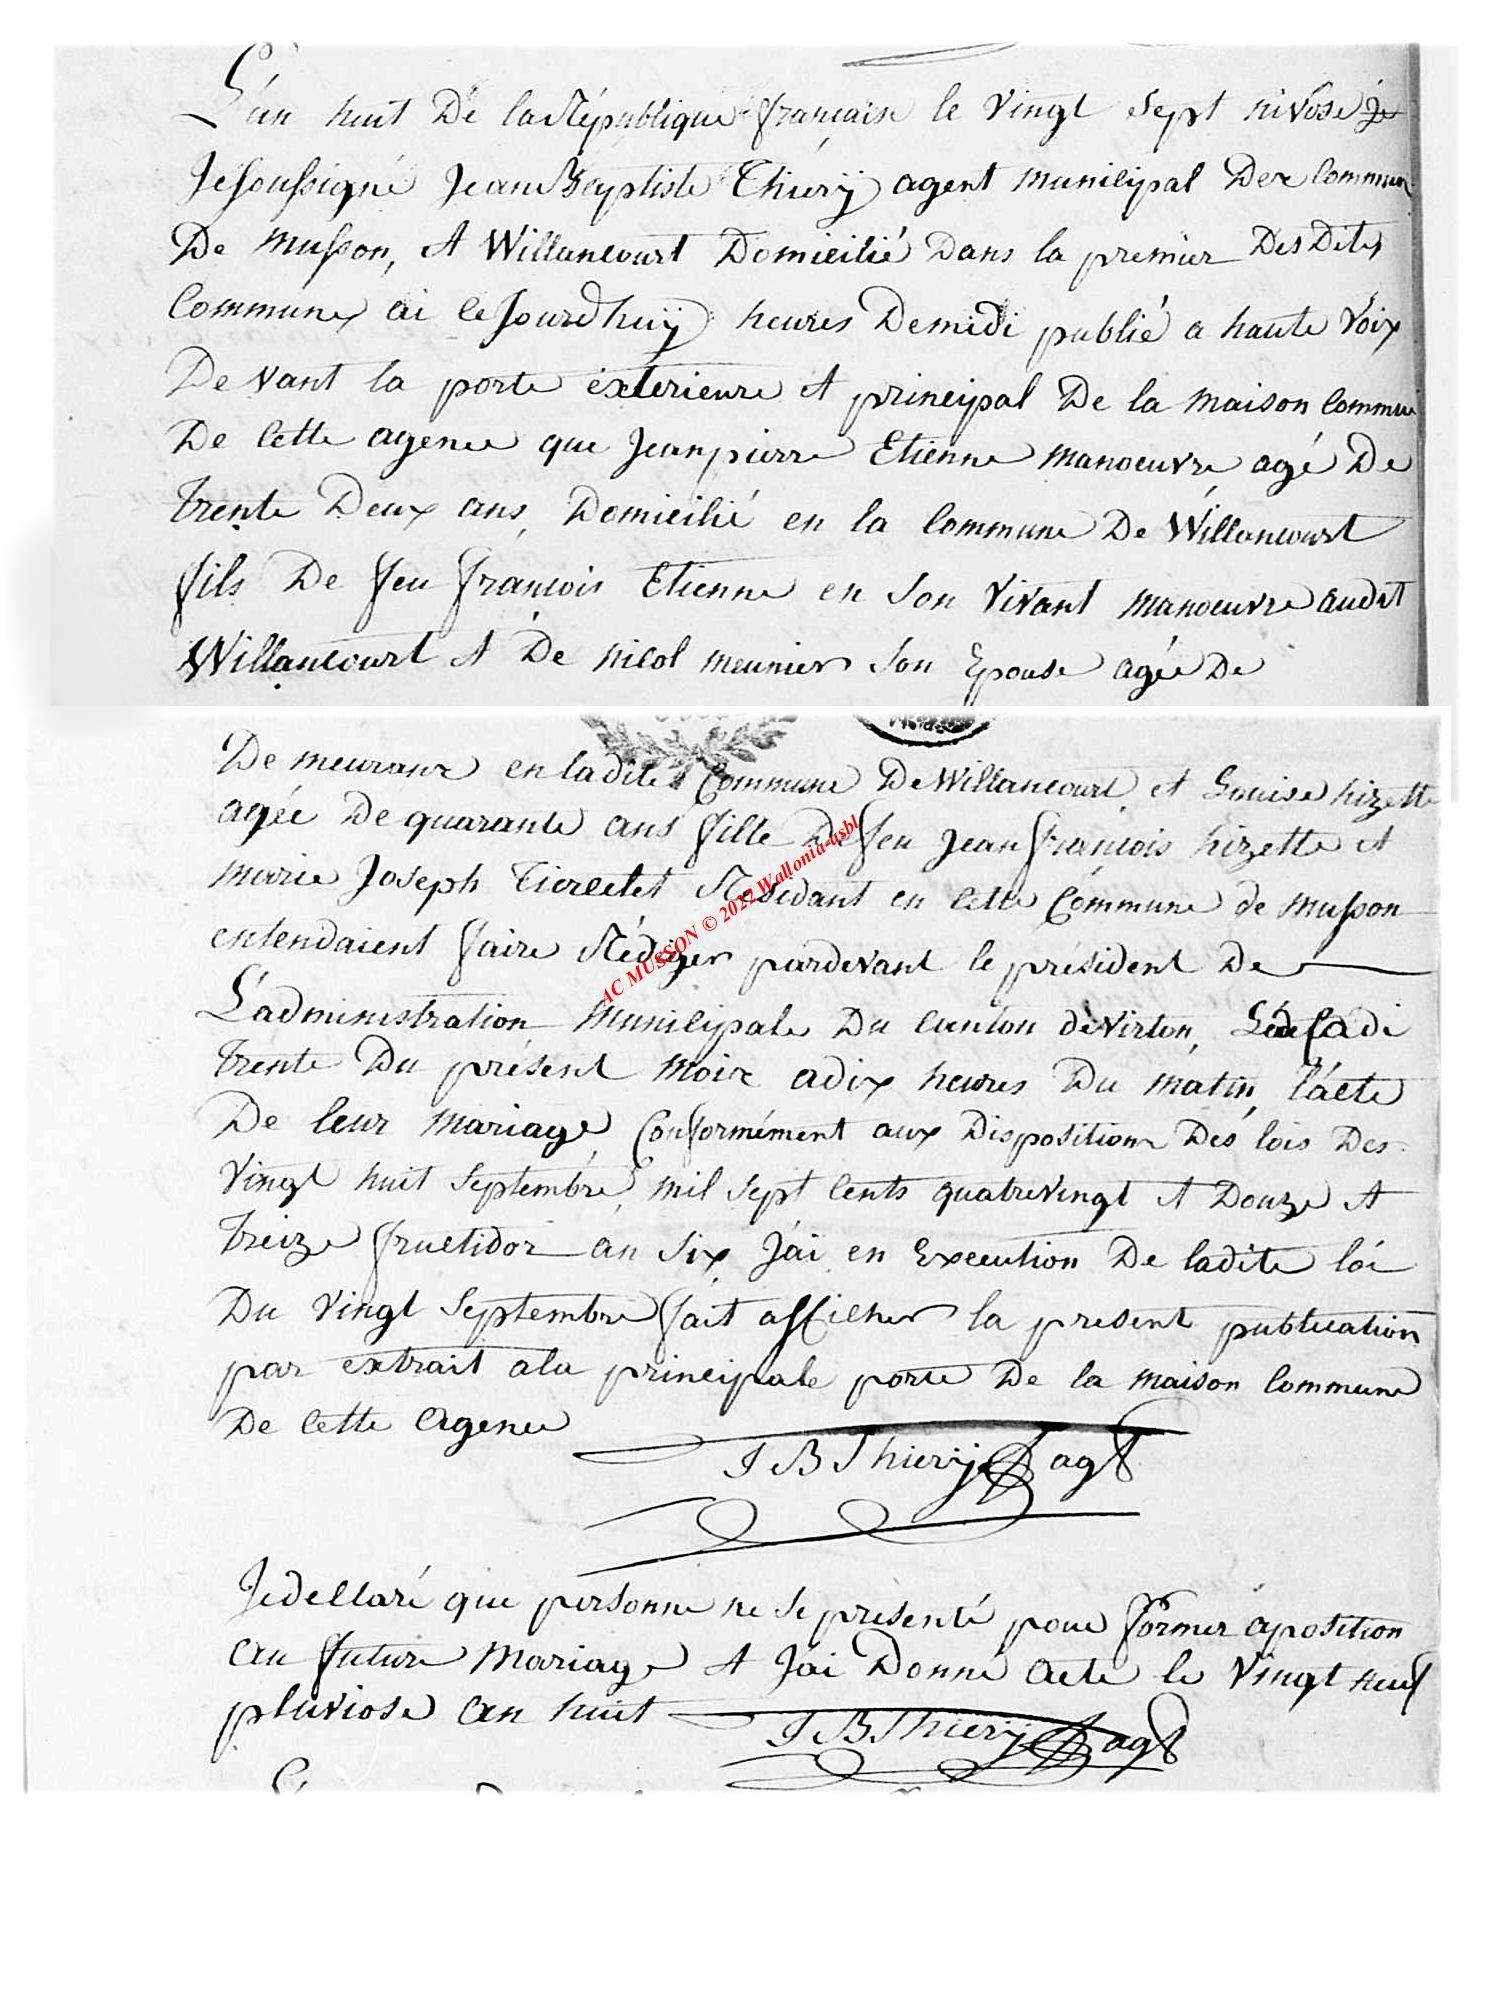 L'an huit De la République française le vingt sept nivose je
Je soussigné Jean Baptiste Thierÿ agent municipal Des Commun
De Musson, et Willancourt Domicilié Dans la premier Des Dites
Communes ai cejourdhuÿ heures De midi publié a haute voix
Devant la porte éxterieure et principal De la maison commu
De Cette agence que Jean pierre Etienne manoeuvre agé De
trente Deux ans Domicilié en la Commune De Willancourt
fils De feu françois Etienne en son vivant manoeuvre audit
Willancourt et De nicol meunier son Epouse agée De
Demeurant en ladite Commune De Willancourt et Louise hizette
agée De quarante ans fille De feu Jean françois hizette et
Marie Joseph Ticretet Résidant en Cette Commune de Musson
entendaient faire Rédiger pardevant le président De
L'administration Municipale Du Canton de Virton, Le decadi
trente Du présent mois a dix heures Du matin, l'acte
De leur mariage Conformément aux Dispositions Des lois Des
vingt huit septembre mil sept cents quatre vingt et Douze et
treize fructidor an six J'ai en Execution De ladite loi
Du vingt septembre fait afficher la present publication
par extrait a la principale porte De la maison Commune
De Cette agence
J B Thierÿ agt
Je dellaré que personne ne se présenté pour former aposition
au future mariage et J'ai Donné acte le vingt neuf
pluviose an huit J B Thierÿ agt
AC MUSSON © 2022 Wallonia-asbl